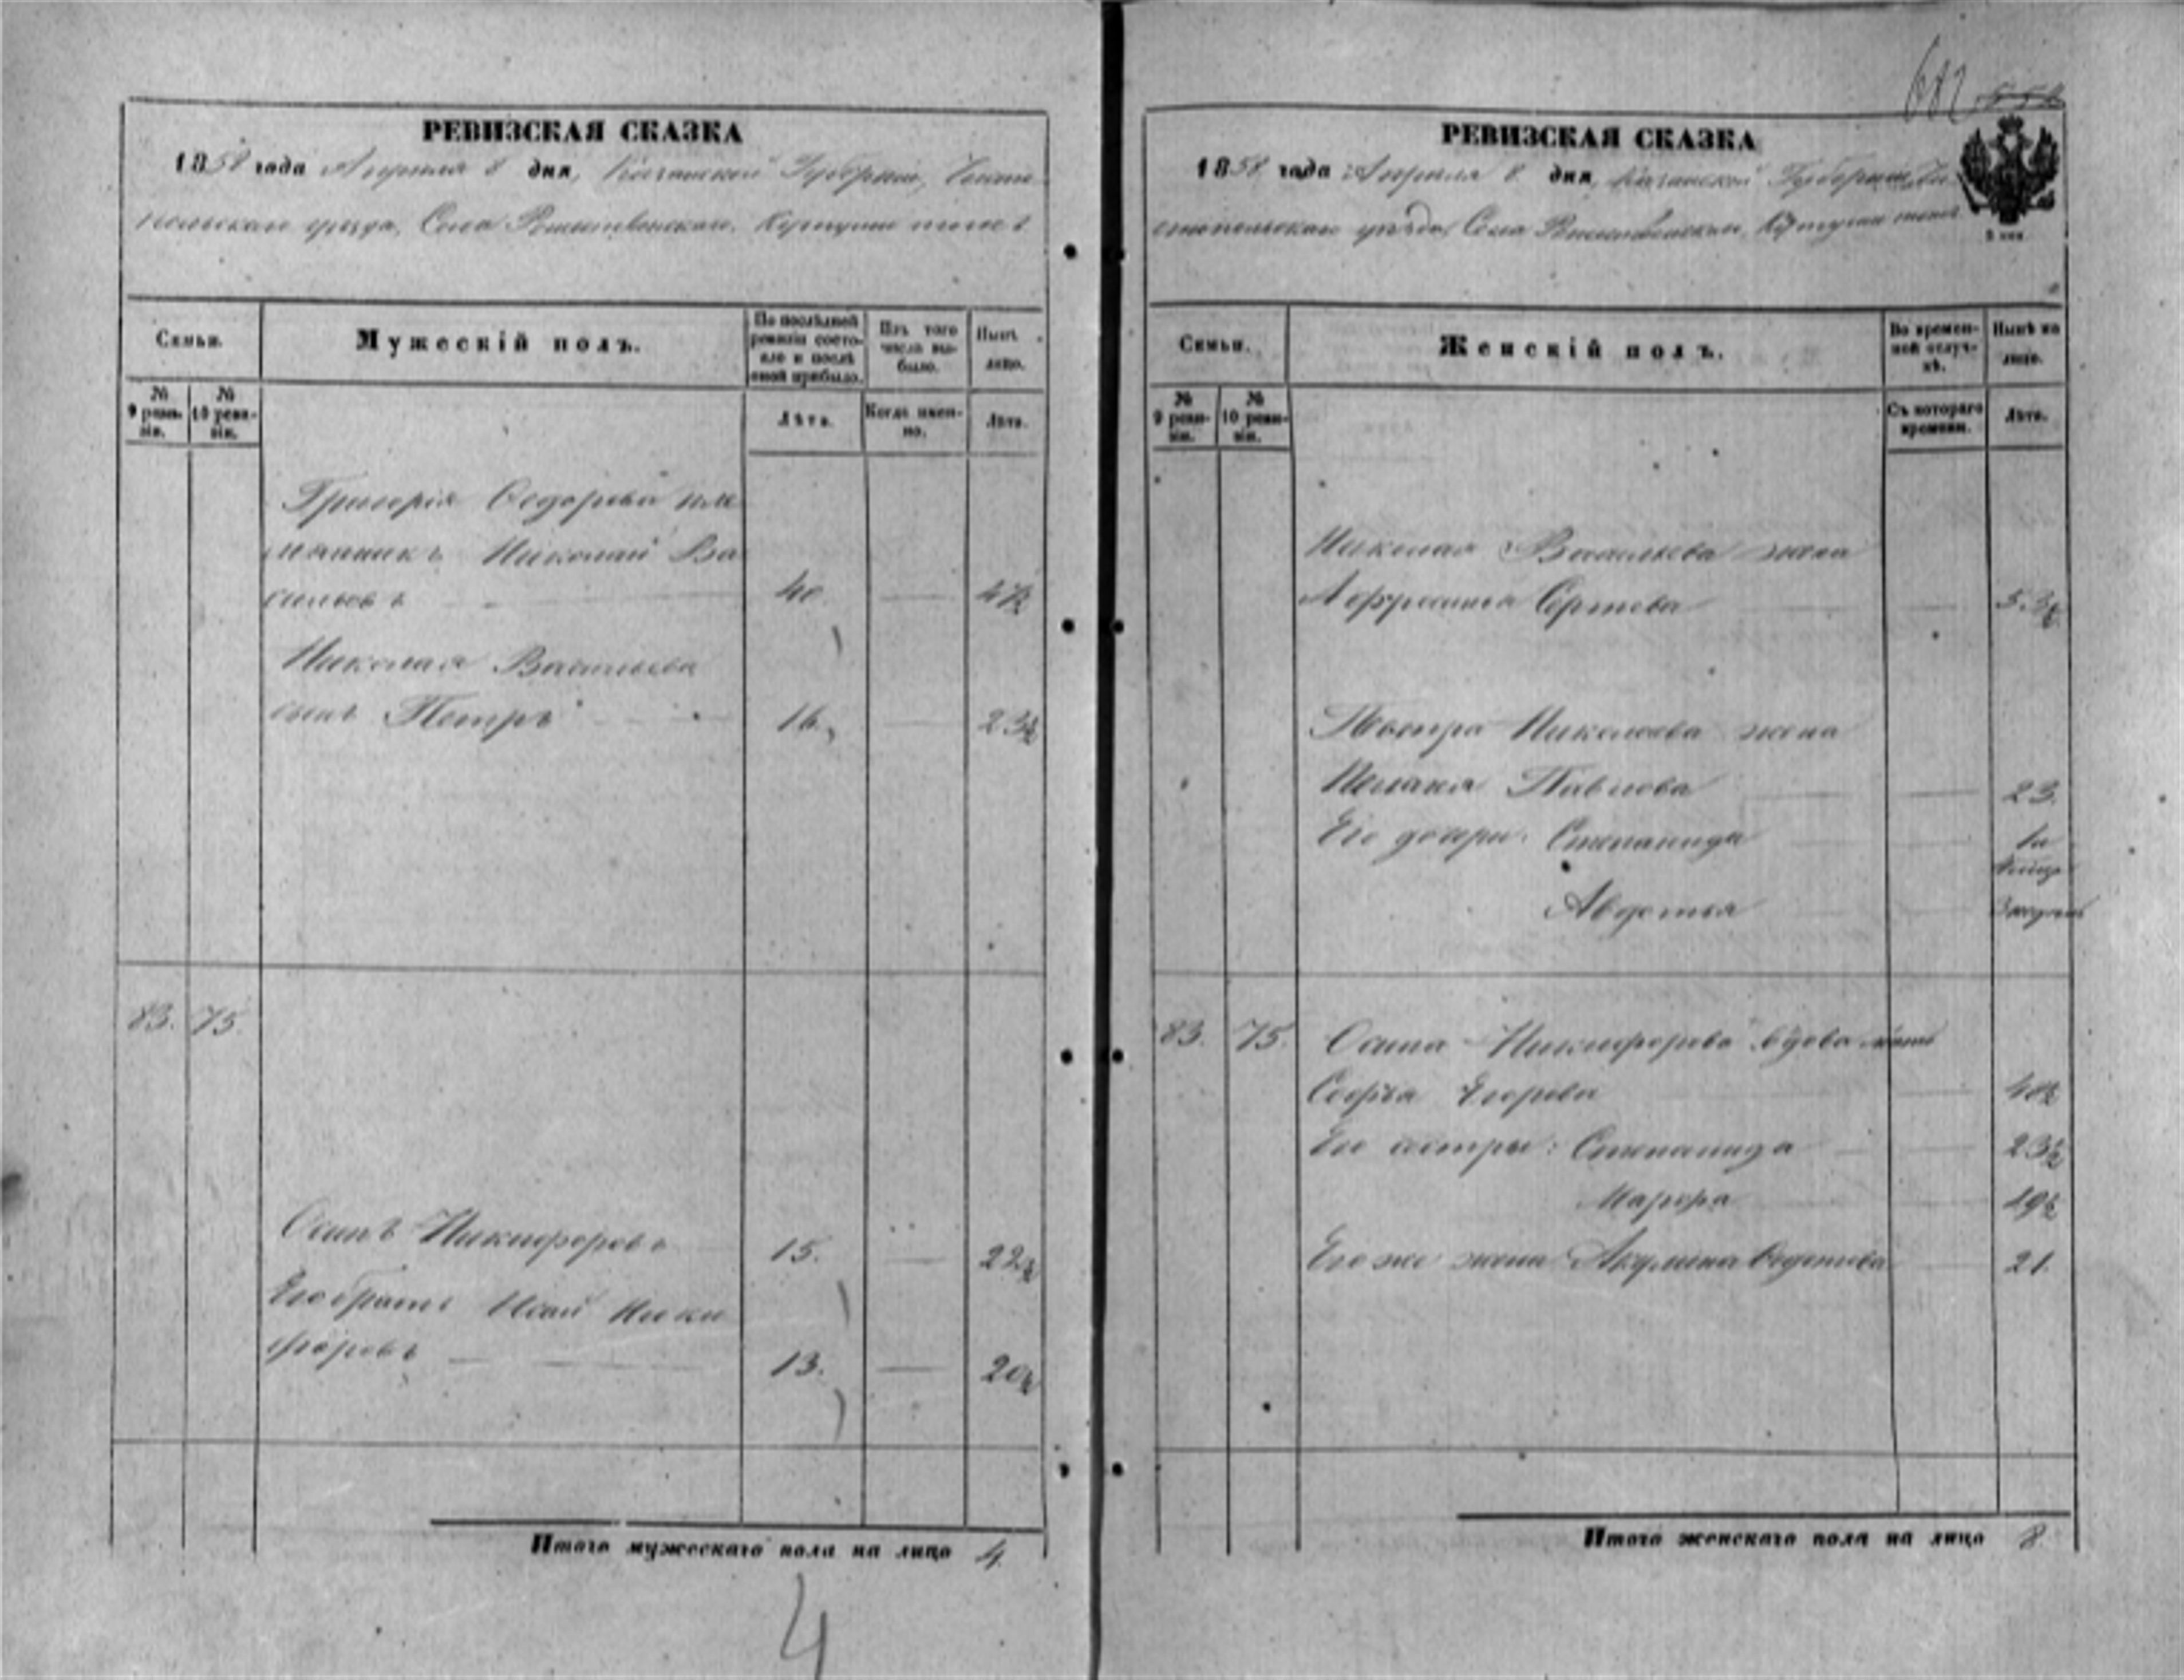 РЕВИЗСКАЯ СКАЗКА
1858 года Апреля 8 дня, Казанской Губерніи, Чисто-
польскаго уезда, Села Рождественскаго, тожъ
Семьи.
Мужескій полъ.
По послѣдней ревизіи состояло и послѣ оной прибыло.
Изъ того числа выбыло.
Нынѣ на лицо.
№ 9 ревизіи.
№ 10 ревизіи.
Лѣта.
Когда именно.
Лѣта.
Григорія Ѳедорова пле
мянникъ Николай Ва
сильевъ 40. 47½
Николая Васильева
сынъ Петръ 16. 23½
83. 75.
Осипъ Никифоровъ 15. 22½
Его братъ Исай Ники
форовъ 13. 20½
Итого мужескаго пола на лицо 4.
4
682 552
РЕВИЗСКАЯ СКАЗКА
1858 года Апреля 8 дня, Казанской Губерніи, Чи
стопольскаго уезда, Села Рождественскаго, тожъ
Семьи.
Женскій полъ.
Во временной отлучкѣ.
Нынѣ на лицо.
№ 9 ревизіи.
№ 10 ревизіи.
Съ котораго времени.
Лѣта.
Николая Васильева жена
Афросинья Сергѣева 53½
Петра Николаева жена
Павлова 23.
Его дочери: Степанида
Авдотья
83. 75. Осипа Никифорова вдова мать
Софья Егорова 48½
Его сестры: Степанида 23½
Марфа 19½
Его же жена Акулина 21.
Итого женскаго пола на лицо 8.